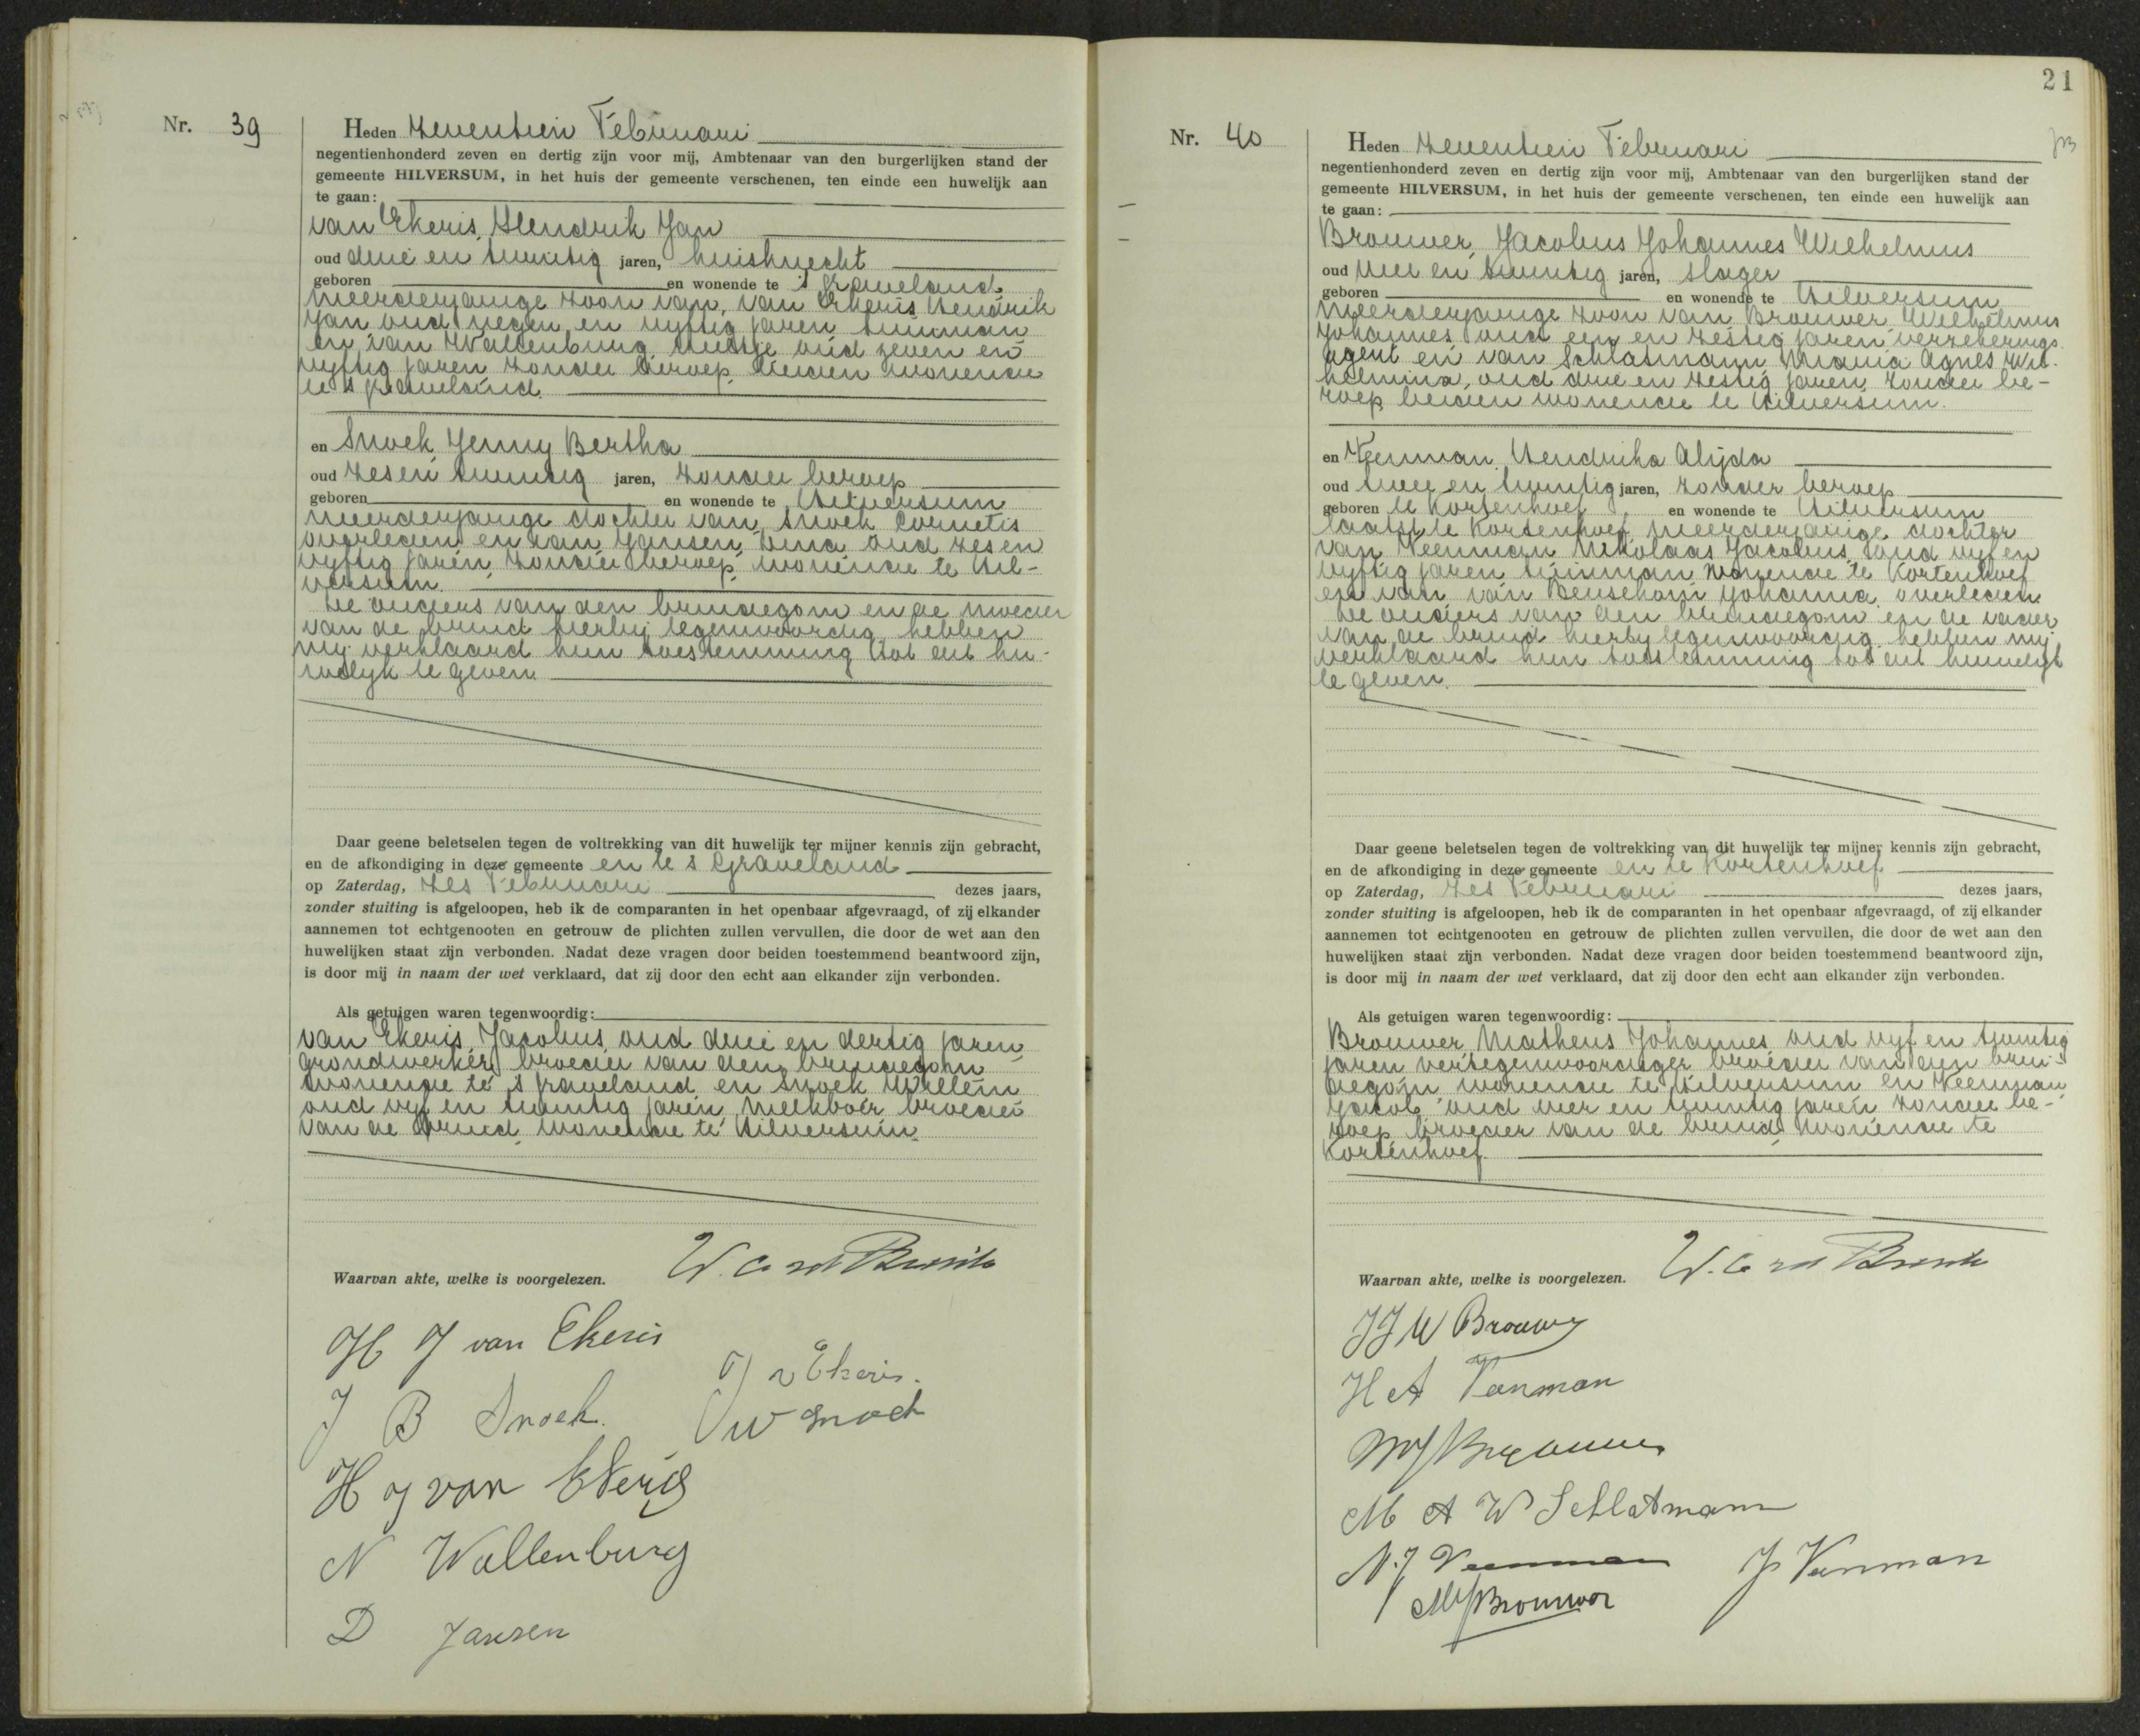 Nr. 39
Heden Zeventien Februari
negentienhonderd zeven en dertig zijn voor mij, Ambtenaar van den burgerlijken stand der
gemeente HILVERSUM, in het huis der gemeente verschenen, ten einde een huwelijk aan
te gaan:
van Ekeris, Hendrik Jan
oud drie en twintig jaren, huisknecht
geboren en wonende te 's Graveland
meerderjarige zoon van, van Ekeris Hendrik
Jan oud negen en vyftig jaren tuinman
en van Wallenburg, oud zeven en
vyftig jaren zonder beroep, beiden wonende
te 's Graveland.
en Snoek, Jenny Bertha
oud zesen twintig jaren, zonder beroep
geboren en wonende te Hilversum
meerderjarige dochter van, Snoek Cornelis
overleden en van Jansen, oud zes en
vyftig jaren, zonder beroep, wonende te Hil-
versum.
De ouders van den bruidegom en de moeder
van de bruid hierby tegenwoordig hebben
my verklaard hun toestemming tot dit hu-
welyk te geven
Daar geene beletselen tegen de voltrekking van dit huwelijk ter mijner kennis zijn gebracht,
en de afkondiging in deze gemeente en te 's Graveland
op Zaterdag, zes Februari dezes jaars,
zonder stuiting is afgeloopen, heb ik de comparanten in het openbaar afgevraagd, of zij elkander
aannemen tot echtgenooten en getrouw de plichten zullen vervullen, die door de wet aan den
huwelijken staat zijn verbonden. Nadat deze vragen door beiden toestemmend beantwoord zijn,
is door mij in naam der wet verklaard, dat zij door den echt aan elkander zijn verbonden.
Als getuigen waren tegenwoordig:
van Ekeris, Jacobus, oud drie en dertig jaren,
grondwerker, broeder van den bruidegom
wonende te 's Graveland en Snoek Willem
oud vyf en twintig jaren, melkboer, broeder
van de bruid, wonende te Hilversum.
Waarvan akte, welke is voorgelezen.
H J van Ekeris
J v Ekeris.
J B Snoek.
W Snoek
H J van Ekeris
N Wallenburg
D Jansen
21
Nr. 40
Heden Zeventien Februari
negentienhonderd zeven en dertig zijn voor mij, Ambtenaar van den burgerlijken stand der
gemeente HILVERSUM, in het huis der gemeente verschenen, ten einde een huwelijk aan
te gaan:
Brouwer, Jacobus Johannes Wilhelmus
oud en twintig jaren, slager
geboren en wonende te Hilversum
meerderjarige zoon van Brouwer, Wilhelmus
Johannes oud een en zestig jaren verzekerings
agent en van Schlatmann Maria Agnes Wil-
helmina, oud drie en zestig jaren, zonder be-
roep, beiden wonende te Hilversum.
en Veenman, Hendrika Alijda
oud twee en twintig jaren, zonder beroep
geboren te Kortenhoef en wonende te Hilversum
laatst te Kortenhoef, meerderjarige dochter
van Veenman Nikolaas Jacobus, oud vyf en
vyftig jaren tuinman wonende te Kortenhoef
en van van Johanna, overleden.
De ouders van den bruidegom en de vader
van de bruid hierby tegenwoordig hebben my
verklaard hun toestemming tot dit huwelyk
te geven.
Daar geene beletselen tegen de voltrekking van dit huwelijk ter mijner kennis zijn gebracht,
en de afkondiging in deze gemeente en te Kortenhoef
op Zaterdag, zes Februari dezes jaars,
zonder stuiting is afgeloopen, heb ik de comparanten in het openbaar afgevraagd, of zij elkander
aannemen tot echtgenooten en getrouw de plichten zullen vervullen, die door de wet aan den
huwelijken staat zijn verbonden. Nadat deze vragen door beiden toestemmend beantwoord zijn,
is door mij in naam der wet verklaard, dat zij door den echt aan elkander zijn verbonden.
Als getuigen waren tegenwoordig:
Brouwer, Matheus Johannes oud vyf en twintig
jaren vertegenwoordiger broeder van den brui-
degom wonende te Hilversum en Veenman
Jacob oud vier en twintig jaren zonder be-
roep broeder van de bruid, wonende te
Kortenhoef.
Waarvan akte, welke is voorgelezen.
J J W Brouwer
H A Veenman
M A W Schlatmann
N. J Veenman
J. Veenman
M J Brouwer